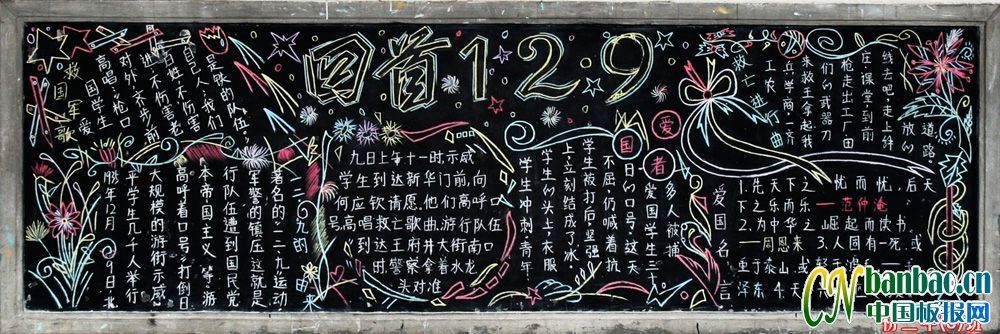 回首12.9
救国军歌
爱国学生
高唱:枪口
对外,齐步前
进!不伤害老
百姓,不伤害
自己人!我们
是铁的队伍,
1935年12月9日,北
平学生几千人举行
大规模的游街示威
高呼着口号"打倒日
本帝国主义"等,游
行队伍遭到国民党
军警的镇压这就是
著名的一二九运动
一二九的由来
九日上午十一时示威
学生到达新华门前,向
何应钦请愿,他们高呼口
号,高唱救亡歌曲,游行队伍
到达王府井大街南口
时,警察拿着水龙
头对准
学生冲刺,青年
学生们头上,衣服
上立刻结成了冰
学生被打后坚强
不屈仍喊着抗
日的口号,这天
爱国学生三十
多人被捕
爱国者
救亡进行曲
工农
兵学商一齐
来救亡拿起我
们的武器刀
枪走出工厂田
庄课堂到前
线去吧走上解
放的
道路
爱国名言
1.先天下之忧而忧,后天
下之乐而乐
—范仲淹
2.为中华之崛起而读书.
—周恩来 3.人固有一死,或
重于泰山,或轻于
泽东 4.天
CN banbao.cn
中国板报网